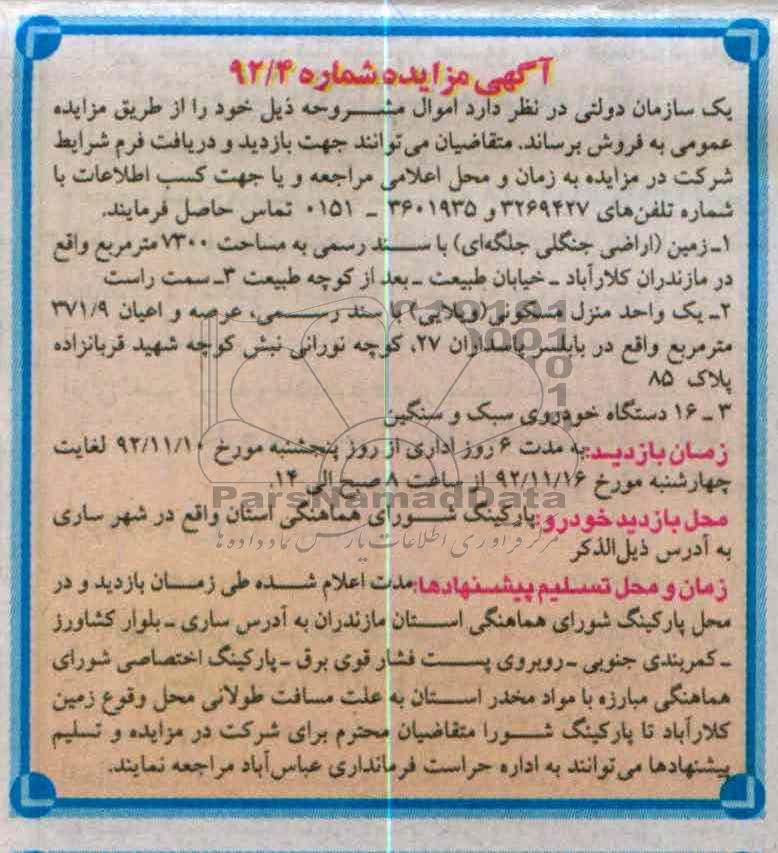 آگهی مزایده شماره ۹۲/۴
یک سازمان دولتی در نظر دارد اموال مشروحه ذیل خود را از طریق مزایده
عمومی به فروش برساند. متقاضیان می‌توانند جهت بازدید و دریافت فرم شرایط
شرکت در مزایده به زمان و محل اعلامی مراجعه و یا جهت کسب اطلاعات با
شماره تلفن‌های ۳۲۶۹۴۲۷ و ۳۶۰۱۹۳۵ ـ ۰۱۵۱ تماس حاصل فرمایند.
۱ـ زمین (اراضی جنگلی جلگه‌ای) با سند رسمی به مساحت ۷۳۰۰ مترمربع واقع
در مازندران کلارآباد ـ خیابان طبیعت ـ بعد از کوچه طبیعت ۳ـ سمت راست
۲ـ یک واحد منزل مسکونی (ویلایی) با سند رسمی، عرصه و اعیان ۳۷۱/۹
مترمربع واقع در بابلسر پاسداران ۲۷، کوچه نورانی نبش کوچه شهید قربانزاده
پلاک ۸۵
۳ ـ ۱۶ دستگاه خودروی سبک و سنگین
زمان بازدید: به مدت ۶ روز اداری از روز پنجشنبه مورخ ۹۲/۱۱/۱۰ لغایت
چهارشنبه مورخ ۹۲/۱۱/۱۶ از ساعت ۸ صبح الی ۱۴.
ParsNamadData
محل بازدید خودرو: پارکینگ شورای هماهنگی استان واقع در شهر ساری
به آدرس ذیل‌الذکر
مرکز فرآوری اطلاعات پارس نماد داده‌ها
زمان و محل تسلیم پیشنهادها: مدت اعلام شده طی زمان بازدید و در
محل پارکینگ شورای هماهنگی استان مازندران به آدرس ساری ـ بلوار کشاورز
ـ کمربندی جنوبی ـ روبروی پست فشار قوی برق ـ پارکینگ اختصاصی شورای
هماهنگی مبارزه با مواد مخدر استان به علت مسافت طولانی محل وقوع زمین
کلارآباد تا پارکینگ شورا متقاضیان محترم برای شرکت در مزایده و تسلیم
پیشنهادها می‌توانند به اداره حراست فرمانداری عباس‌آباد مراجعه نمایند.